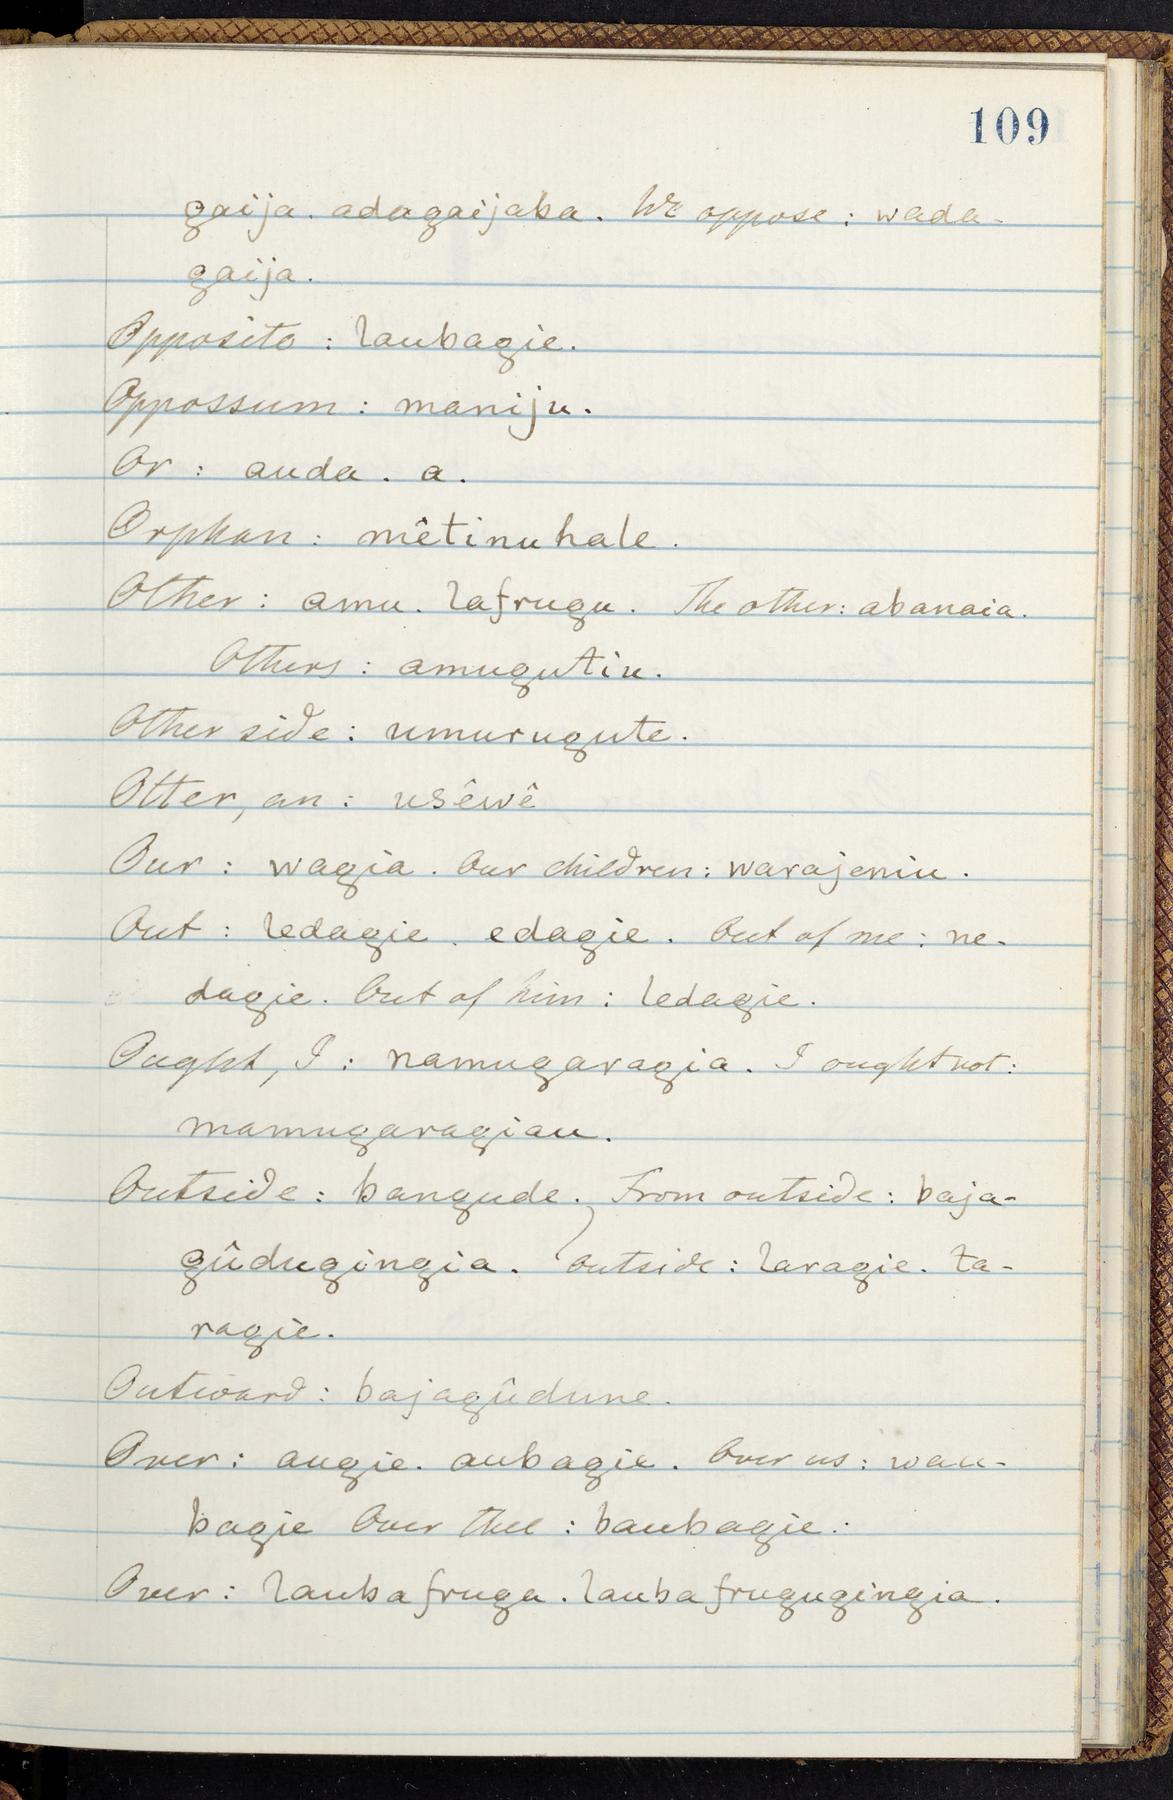 109
gaija. adagaijaba. We oppose: wada-
gaija.
Opposite: laubagie.
Oppossum: maniju.
Or: auda. a.
Orphan: mêtinuhale.
Other: amu. lafrugu. The other: abanaia.
Others: amugutiu.
Other side: umurugute.
Otter, an: usêwê
Our: wagia. Our children: warajeniu.
Out: ledagie. edagie. Out of me: ne-
dagie. Out of him: ledagie.
Ought, I: namugaragia. I ought not:
mamugaragiau.
Outside: bangude. From outside: baja-
gûdugingia. Outside: laragie. ta-
ragie.
Outward: bajagûdune.
Over: augie. aubagie. Over us: wau-
bagie Over thee: baubagie.
Over: laubafruga. laubafrugugingia.